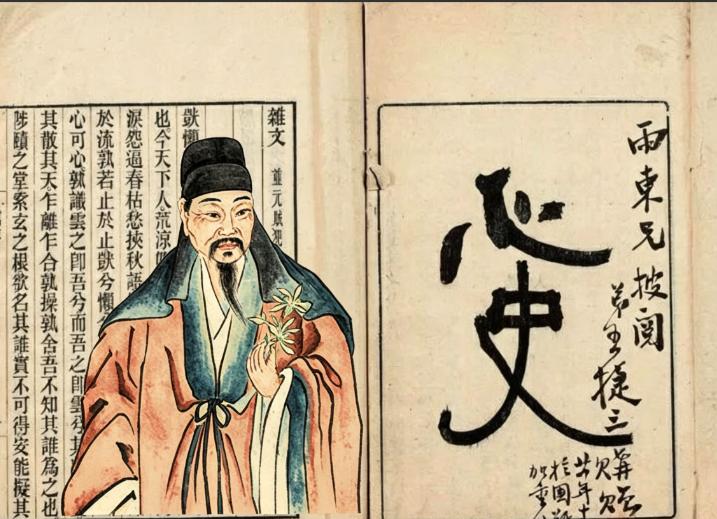 雨東兄披閱
弟王捷三
廿年十
心史
雜文
獃懶
也今天下人荒涼
淚怨逼春枯愁挾秋語
於流孰若止於止獃兮懶
心可心孰讖雲之卽吾兮而吾之卽雲兮其
其散其天乍離乍合孰操孰舍吾不知其誰為之也
陟蹟之堂索玄之根欲名其誰實不可得安能擬其